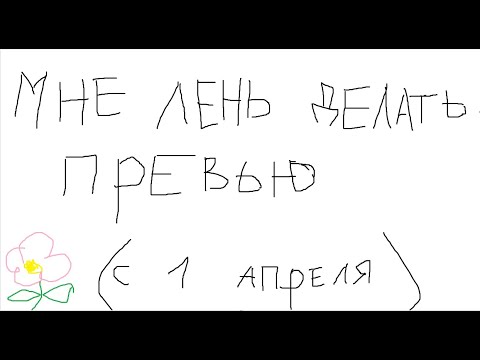 МНЕ ЛЕНЬ ДЕЛАТЬ
ПРЕВЬЮ
(С 1 АПРЕЛЯ)